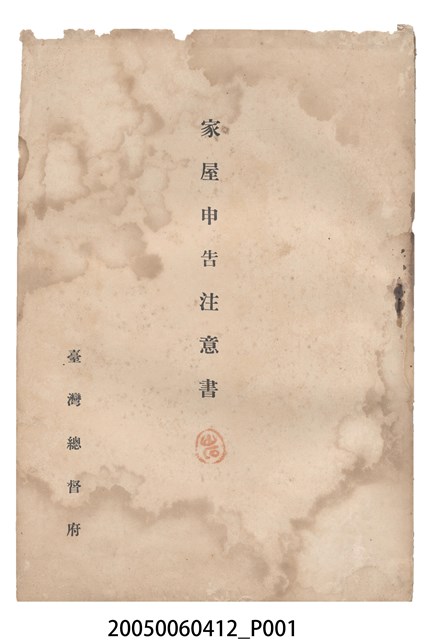 家屋申告注意書
臺灣總督府
20050060412_P001